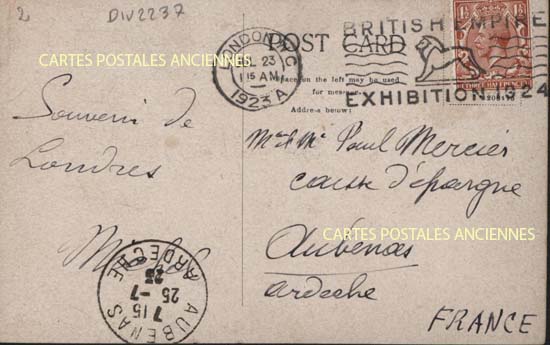 2
DIV2237
BRITISH EMPIRE
EXHIBITION 1924
LONDON
23
15 AM
1923 A
POST CARD
Space on the left may be used
for message.
Address below:
THREE HALFPENCE
CARTES POSTALES ANCIENNES
Souvenir de
Londres
Mr & Me Paul Mercier
caisse d'épargne
CARTES POSTALES ANCIENNES
Aubenas
Ardèche
FRANCE
AUBENAS
7 15
25-7
23
ARDECHE